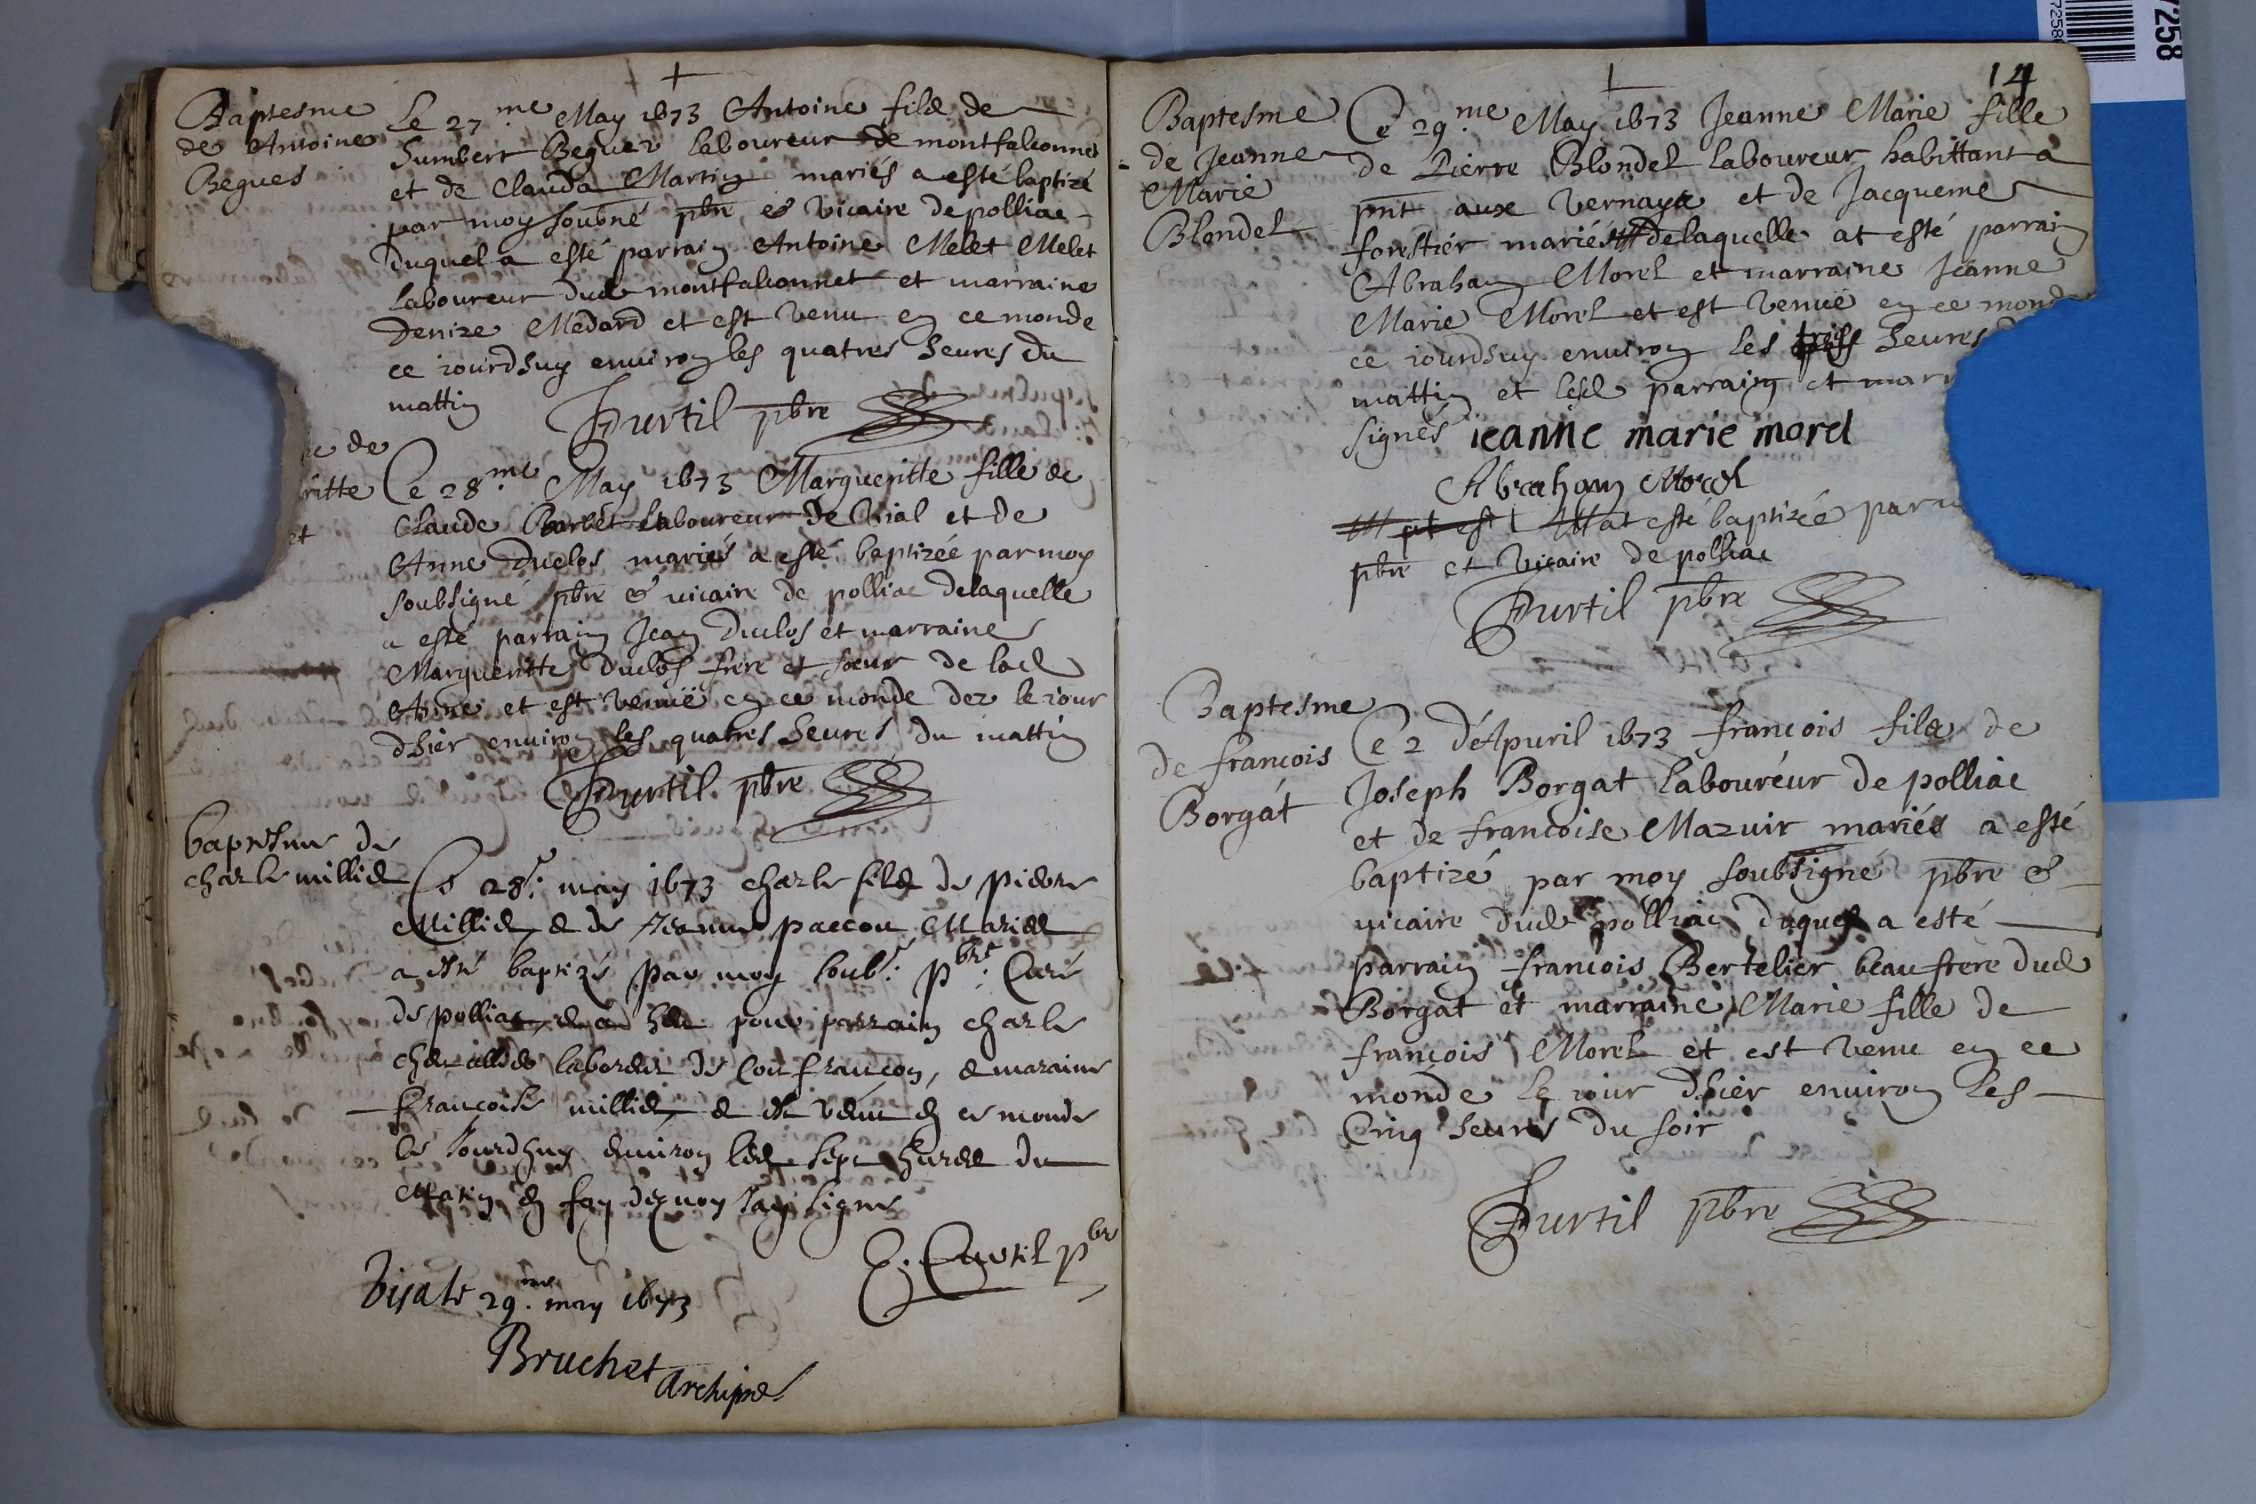 Baptesme
de Antoine
Begues
Le 27.me May 1673 Antoine filz de
humbert Begues laboureur de montfalconnet
et de Clauda Martin mariés a esté baptizé
par moy soubné pbre & vicaire de polliac
duquel a esté parrain Antoine Melet Melet
laboureur dud montfalconnet et marraine
Denize Medard et est venu en ce monde
ce iourdhuy environ les quatres heures du
mattin
Curtil pbre
e de
ritte
et
Ce 28.me May 1673 Margueritte fille de
Claude Barbet laboureur de Vial et de
Anne Duclos mariés a esté baptizée par moy
soubsigné pbre & vicaire de polliac delaquelle
a esté parrain Jean Duclos et marraine
Margueritte Duclos frere et soeur de lad
Anne et est venuë en ce monde dez le iour
dhier environ les quatres heures du mattin
Curtil pbre
baptesme de
charle millied
Ce 28.e may 1673 charle filz de pierre
Millied & de Jeanne paccou Mariez
a esté baptizé par moy soubs.e pbre. Curé
de polliac, & a heu pour parrain charle
laboreur de Confrançon, & maraine
françoise millied, & est venu en ce monde
ce Jourdhuy environ les sept heures du
Matin en foy dequoy Jay signe
C. Curtil pbr
Visate 29.me may 1673
Bruchet Archipre
14
Baptesme
de Jeanne
Marie
Blondel
Ce 29.me May 1673 Jeanne Marie fille
de Pierre Blondel laboureur habittant a
pnt aux vernaye et de Jacqueme
forestier mariés delaquelle at esté parrain
Abraham Morel et marraine Jeanne
Marie Morel et est venuë en ce mond
ce iourdhuy environ les trois heures d
mattin et lesd parrain et marr
signés ieanne marie morel
Abraham Morel
at esté baptizée par m
pbre et vicaire de polliac
Curtil pbre
Baptesme
de françois
Borgat
Ce 2 d'Apuril 1673 françois filz de
Joseph Borgat laboureur de polliac
et de françoise Mazuir mariés a esté
baptizé par moy soubsigné pbre &
vicaire dud polliac duquel a esté
parrain françois Bertelier beaufrere dud
Borgat et marraine Marie fille de
françois Morel et est venu en ce
monde le iour dhier environ les
Cinq heures du soir
Curtil pbre
7258